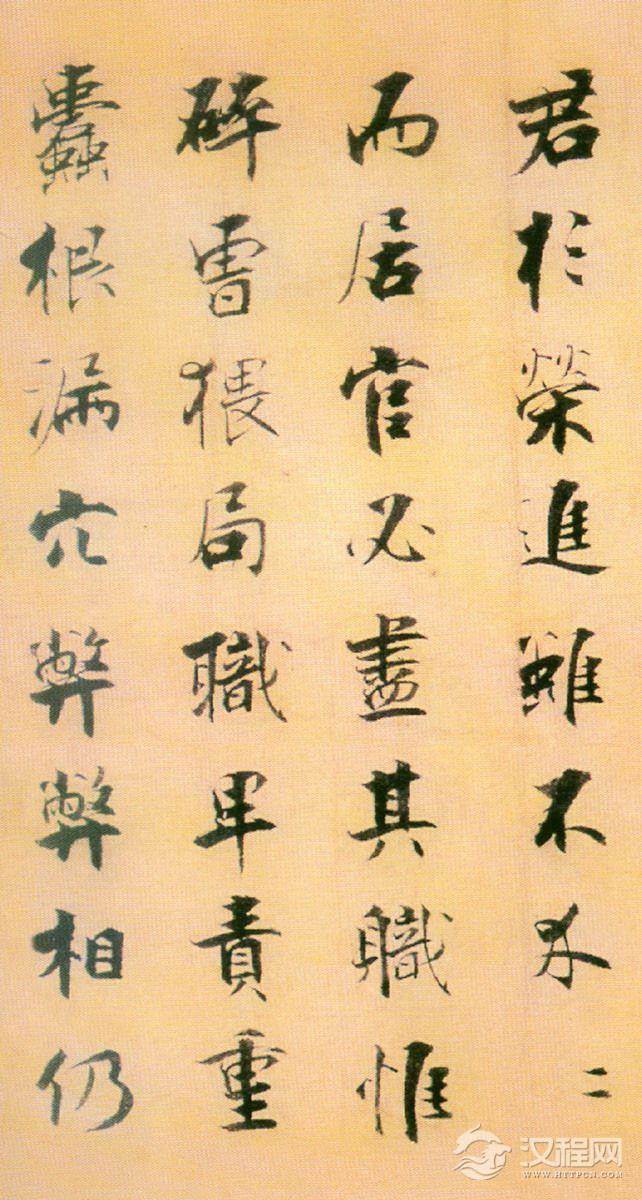 君於榮進雖不二
而居官必盡其職惟
碎曹猥局職卑責重
蠹根漏穴弊弊相仍
汉程网
WWW.HTTPCN.COM